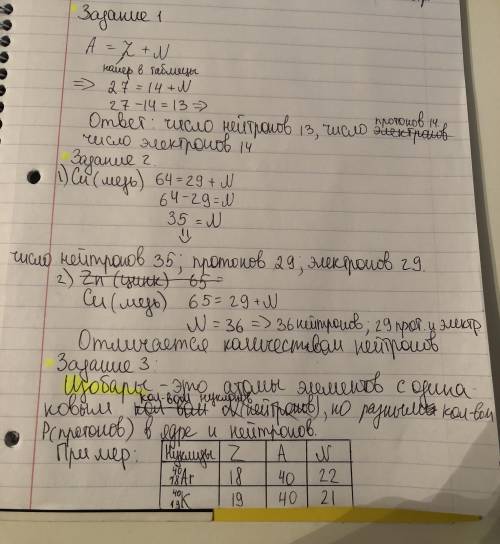 Задание 1
A = Z + N
номер в таблицы
=> 27 = 14 + N
27 - 14 = 13 =>
Ответ: число нейтронов 13, число протонов 14. электронов
число электронов 14
Задание 2.
1) Cu (медь) 64 = 29 + N
64 - 29 = N
35 = N
⇓
число нейтронов 35; протонов 29; электронов 29.
2) Zn (цинк) 65
Cu (медь) 65 = 29 + N
N = 36 => 36 нейтронов, 29 прот. и электр.
Отличается количеством нейтронов
Задание 3:
Изобары - это атомы элементов с одина-
ковым кол-вом нуклонов (нейтронов), но разным кол-вом
P(протонов) в ядре и нейтронов.
Пример: Нуклиды Z A N
40 18 Ar 18 40 22
40 19 K 19 40 21